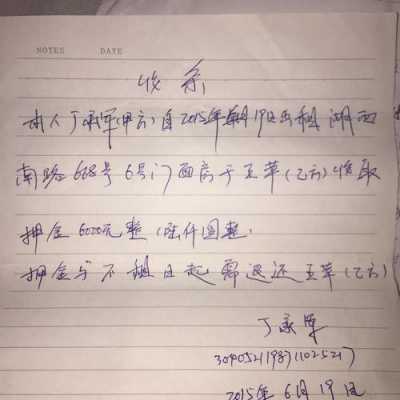 NOTES DATE
收条
本人丁承军(甲方)自2015年6月19日出租湖西
南路668号6号门面房于王苹(乙方)收取
押金6000元整(陆仟圆整.
押金与不租日起需退还王苹(乙方)
丁承军
2015年6月19日